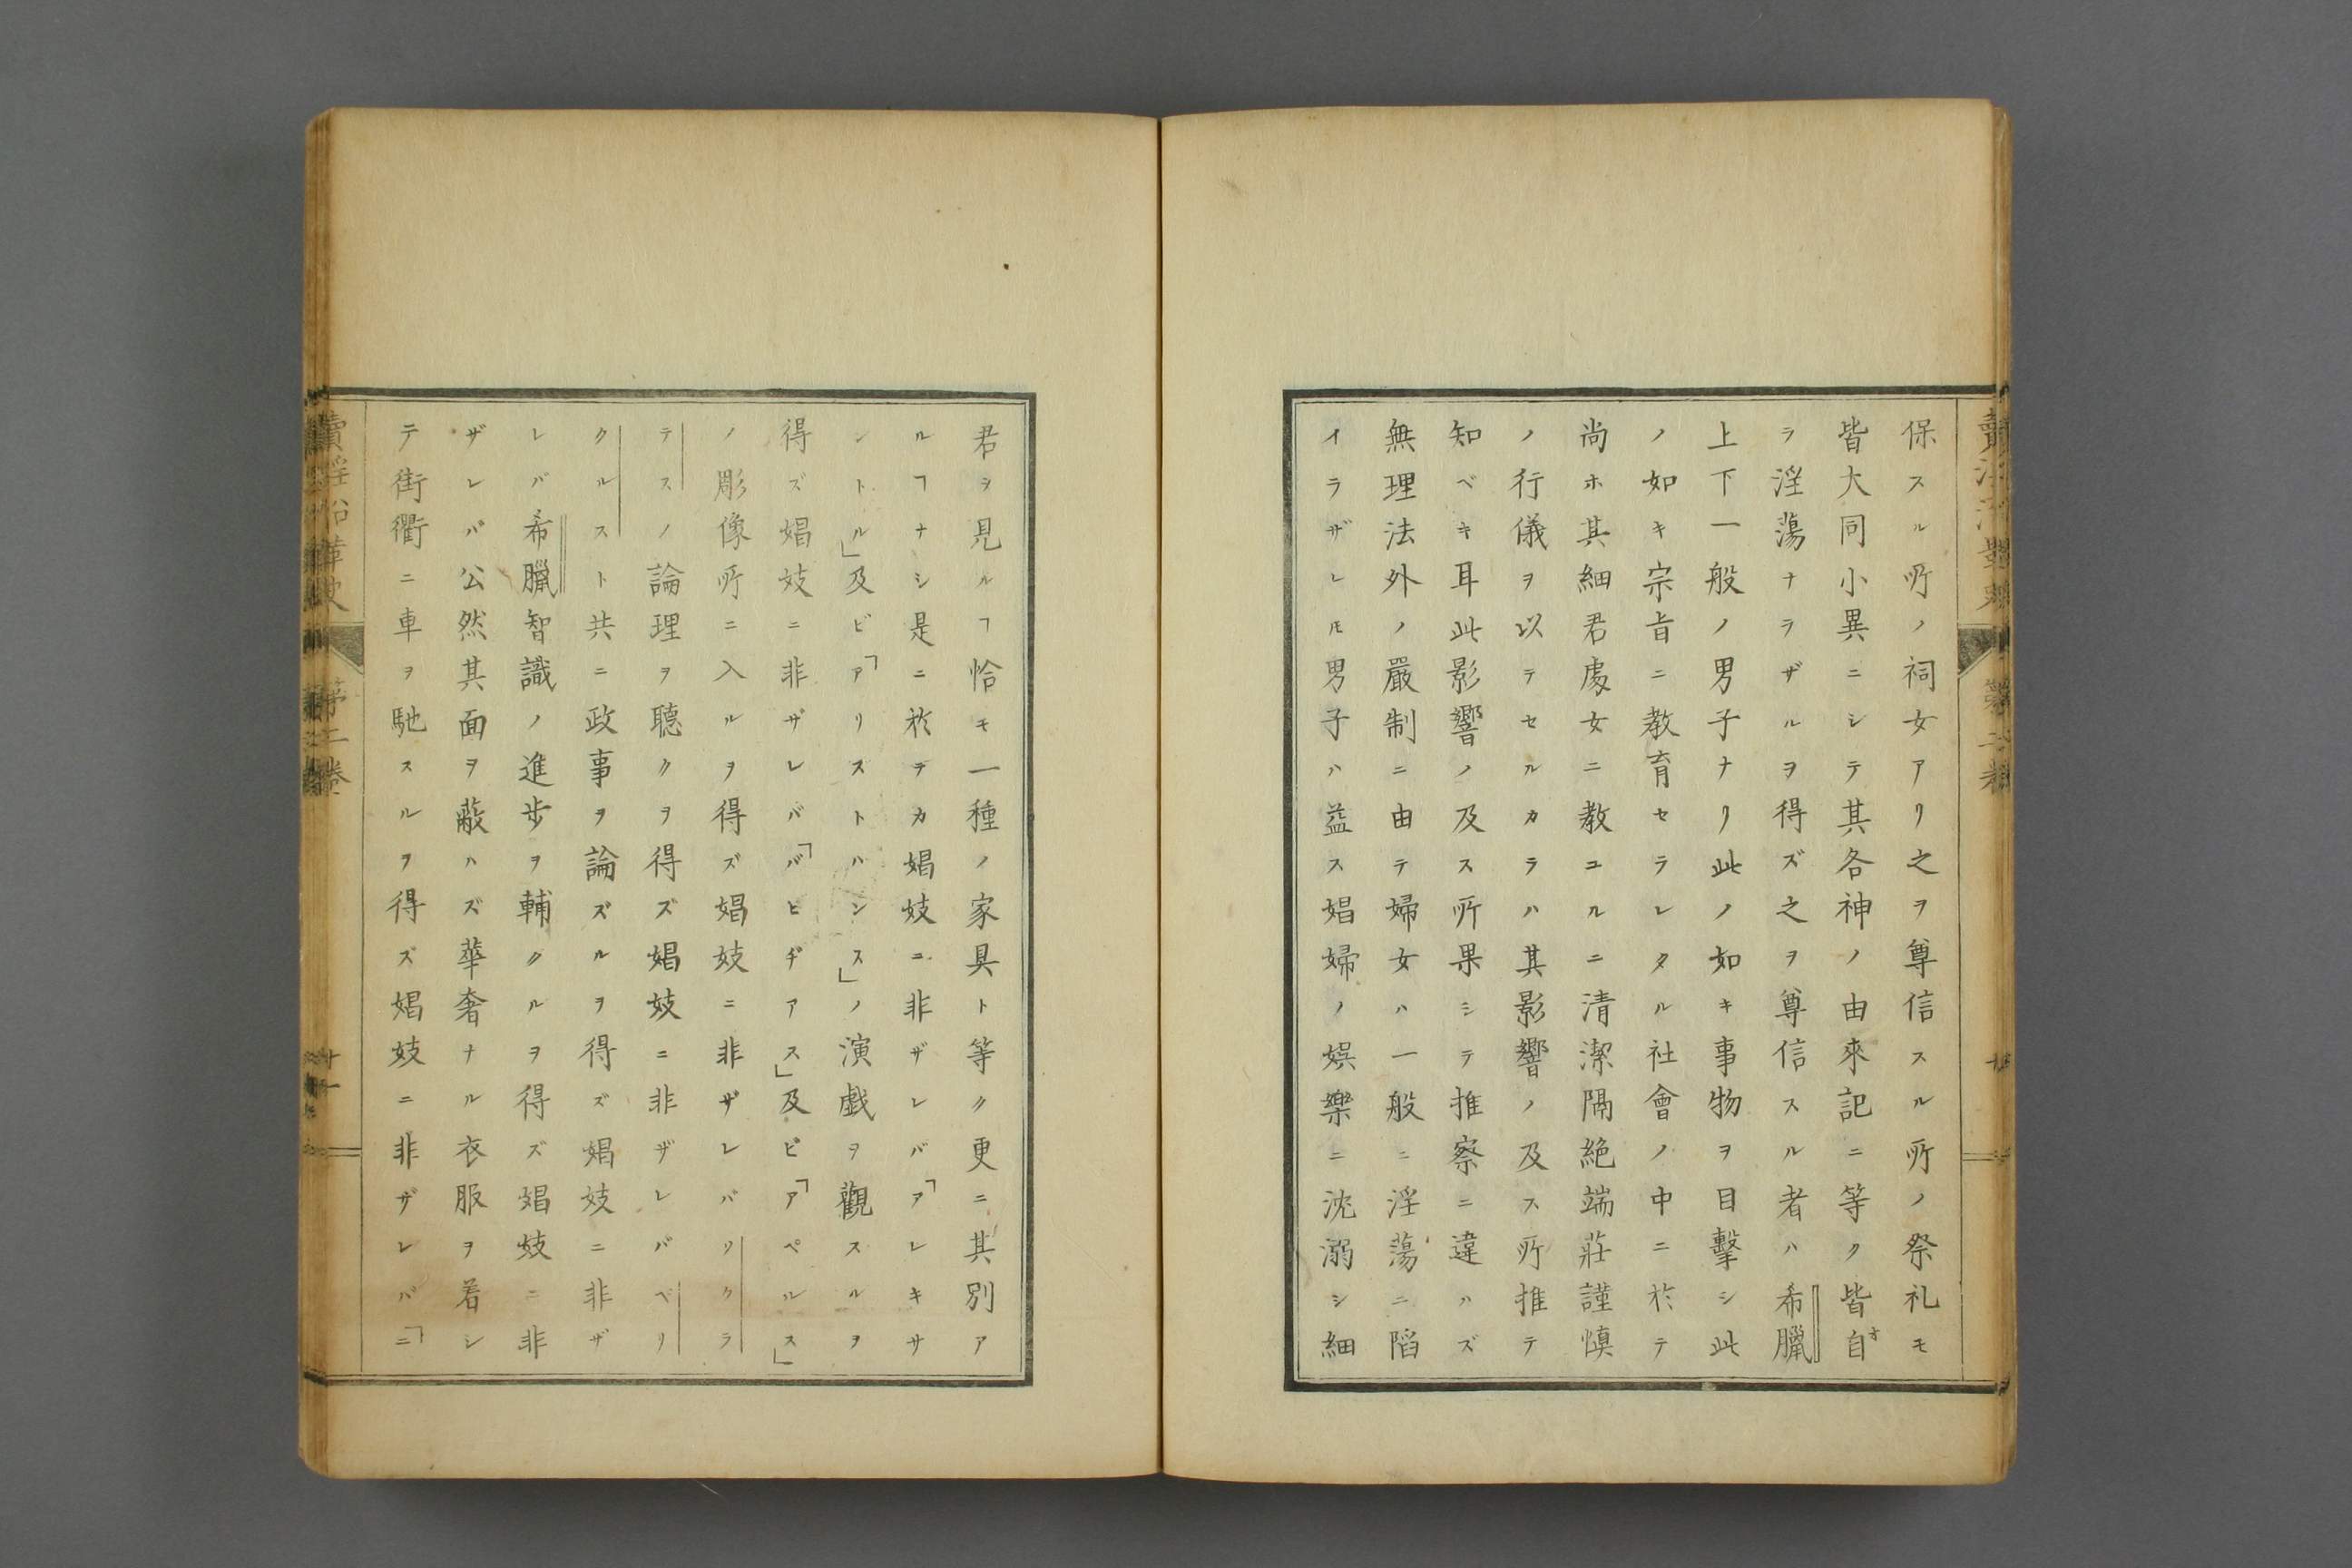 保スル所ノ祠女アリ之ヲ尊信スル所ノ祭礼モ
皆大同小異ニシテ其各神ノ由來記ニ等ク皆自オ
ラ淫蕩ナラザルヲ得ズ之ヲ尊信スル者ハ希臘
上下一般ノ男子ナリ此ノ如キ事物ヲ目擊シ此
ノ如キ宗旨ニ教育セラレタル社會ノ中ニ於テ
尚ホ其細君處女ニ教ユルニ清潔隔絶端莊謹慎
ノ行儀ヲ以テセルカラハ其影響ノ及ス所推テ
知ベキ耳此影響ノ及ス所果シテ推察ニ違ハズ
無理法外ノ嚴制ニ由テ婦女ハ一般ニ淫蕩ニ陷
イラザレ𪜈男子ハ益ス娼婦ノ娯樂ニ沈溺シ細
君ヲ見ルヿ恰モ一種ノ家具ト等ク更ニ其別ア
ルヿナシ是ニ於テカ娼妓ニ非ザレバ「アレキサ
ントル」及ビ「アリストハンス」ノ演戲ヲ觀スルヲ
得ズ娼妓ニ非ザレバ「バヒヂアス」及ピ「アペルス」
ノ彫像所ニ入ルヲ得ズ娼妓ニ非ザレバソクラ
テスノ論理ヲ聽クヲ得ズ娼妓ニ非ザレバベリ
クルスト共ニ政事ヲ論ズルヲ得ズ娼妓ニ非ザ
レバ希臘智識ノ進歩ヲ輔クルヲ得ズ娼妓ニ非
ザレバ公然其面ヲ蔽ハズ華奢ナル衣服ヲ着シ
テ街衢ニ車ヲ馳スルヲ得ズ娼妓ニ非ザレバ「ニ
賣淫沿革史
第二卷
十一